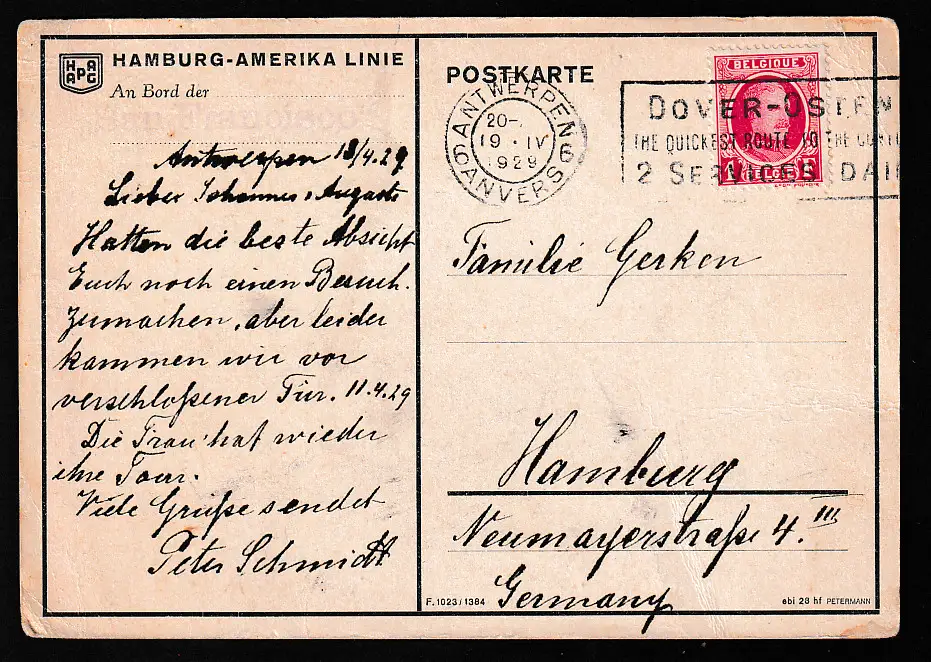 HAPAG
HAMBURG-AMERIKA LINIE
An Bord der
Antwerpen 18/4.29
Lieber Johannes, Auguste
Hatten die beste Absicht
Euch noch einen Besuch.
zumachen, aber leider
kammen wir vor
verschloßener Tür. 11.4.29
Die Frau hat wieder
ihre Tour.
Viele Grüße sendet
Peter Schmidt
POSTKARTE
6 ANTWERPEN 6
20-
19 · IV
1929
ANVERS
DOVER-OSTEN
THE QUICKEST ROUTE TO THE CONTI
2 SERVICES DAI
BELGIQUE
BELGIE
Familie Gerken
Hamburg
Neumayerstraße 4. III
Germany
F. 1023/1384
ebi 28 hf PETERMANN